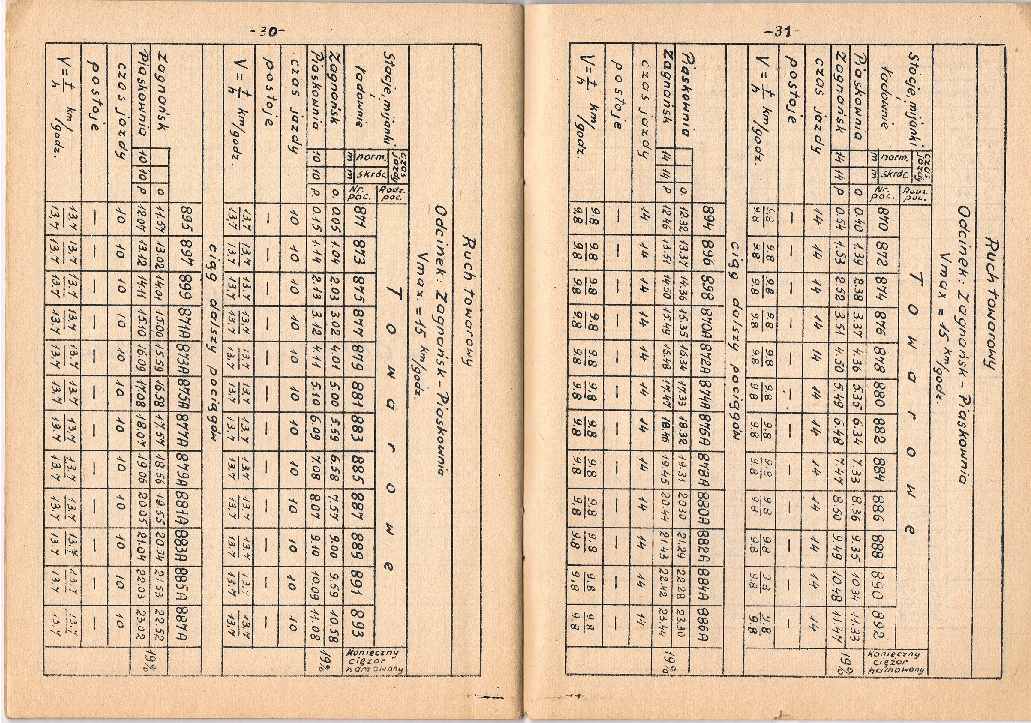 -30-
Ruch towarowy
Odcinek: Zagnańsk - Piaskownia
Vmax = 15 km/godz.
Stacje, mijanki i ładownie | czas jazdy | norm. | skróc. | Rodz. poc. | Nr. poc. | Towarowe | Konieczny ciężar hamowany
m | m | 871 | 873 | 875 | 877 | 879 | 881 | 883 | 885 | 887 | 889 | 891 | 893
Zagnańsk | o. | 0.05 | 1.04 | 2.03 | 3.02 | 4.01 | 5.00 | 5.59 | 6.58 | 7.57 | 9.00 | 9.59 | 10.58
Piaskownia | 10 | 10 | P. | 0.15 | 1.14 | 2.13 | 3.12 | 4.11 | 5.10 | 6.09 | 7.08 | 8.07 | 9.10 | 10.09 | 11.08 | 19%
czas jazdy | 10 | 10 | 10 | 10 | 10 | 10 | 10 | 10 | 10 | 10 | 10 | 10
postoje | — | — | — | — | — | — | — | — | — | — | — | —
V = t/h km/godz. | 13.7 13.7 | 13.7 13.7 | 13.7 13.7 | 13.7 13.7 | 13.7 13.7 | 13.7 13.7 | 13.7 13.7 | 13.7 13.7 | 13.7 13.7 | 13.7 13.7 | 13.7 13.7 | 13.7 13.7
ciąg dalszy pociągów
895 | 897 | 899 | 871A | 873A | 875A | 877A | 879A | 881A | 883A | 885A | 887A
Zagnańsk | o | 11.57 | 13.02 | 14.01 | 15.00 | 15.59 | 16.58 | 17.57 | 18.56 | 19.55 | 20.54 | 21.53 | 22.52
Piaskownia | 10 | 10 | P | 12.07 | 13.12 | 14.11 | 15.10 | 16.09 | 17.08 | 18.07 | 19.06 | 20.05 | 21.04 | 22.03 | 23.02 | 19%
czas jazdy | 10 | 10 | 10 | 10 | 10 | 10 | 10 | 10 | 10 | 10 | 10 | 10
postoje | — | — | — | — | — | — | — | — | — | — | — | —
V = t/h km/godz. | 13.7 13.7 | 13.7 13.7 | 13.7 13.7 | 13.7 13.7 | 13.7 13.7 | 13.7 13.7 | 13.7 13.7 | 13.7 13.7 | 13.7 13.7 | 13.7 13.7 | 13.7 13.7 | 13.7 13.7
-31-
Ruch towarowy
Odcinek: Zagnańsk - Piaskownia
Vmax = 15 km/godz.
Stacje, mijanki i ładownie | czas jazdy | norm. | skróc. | Rodz. poc. | Nr. poc. | Towarowe | Konieczny ciężar hamowany
m | m | 870 | 872 | 874 | 876 | 878 | 880 | 882 | 884 | 886 | 888 | 890 | 892
Piaskownia | o. | 0.40 | 1.39 | 2.38 | 3.37 | 4.36 | 5.35 | 6.34 | 7.33 | 8.36 | 9.35 | 10.34 | 11.33
Zagnańsk | 14 | 14 | P | 0.54 | 1.53 | 2.52 | 3.51 | 4.50 | 5.49 | 6.48 | 7.47 | 8.50 | 9.49 | 10.48 | 11.47 | 19%
czas jazdy | 14 | 14 | 14 | 14 | 14 | 14 | 14 | 14 | 14 | 14 | 14 | 14
postoje | — | — | — | — | — | — | — | — | — | — | — | —
V = t/h km/godz. | 9.8 9.8 | 9.8 9.8 | 9.8 9.8 | 9.8 9.8 | 9.8 9.8 | 9.8 9.8 | 9.8 9.8 | 9.8 9.8 | 9.8 9.8 | 9.8 9.8 | 9.8 9.8 | 9.8 9.8
ciąg dalszy pociągów
894 | 896 | 898 | 870A | 872A | 874A | 876A | 878A | 880A | 882A | 884A | 886A
Piaskownia | o. | 12.32 | 13.37 | 14.36 | 15.35 | 16.34 | 17.33 | 18.32 | 19.31 | 20.30 | 21.29 | 22.28 | 23.30
Zagnańsk | 14 | 14 | P | 12.46 | 13.51 | 14.50 | 15.49 | 16.48 | 17.47 | 18.46 | 19.45 | 20.44 | 21.43 | 22.42 | 23.44 | 19%
czas jazdy | 14 | 14 | 14 | 14 | 14 | 14 | 14 | 14 | 14 | 14 | 14 | 14
postoje | — | — | — | — | — | — | — | — | — | — | — | —
V = t/h km/godz. | 9.8 9.8 | 9.8 9.8 | 9.8 9.8 | 9.8 9.8 | 9.8 9.8 | 9.8 9.8 | 9.8 9.8 | 9.8 9.8 | 9.8 9.8 | 9.8 9.8 | 9.8 9.8 | 9.8 9.8